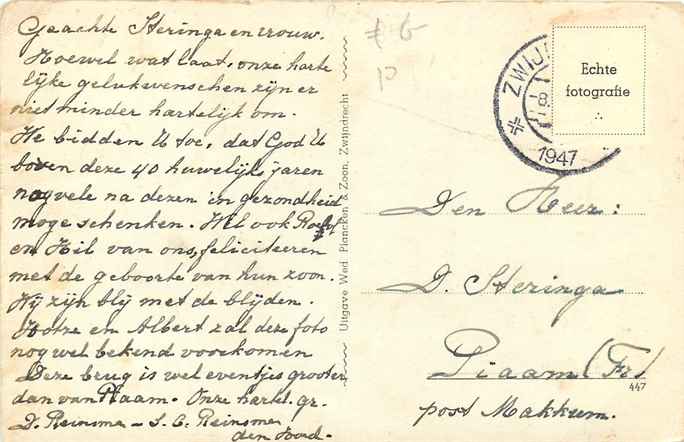 Geachte Steringa en vrouw.
Hoewel wat laat, onze harte
lijke gelukwenschen zijn er
niet minder hartelijk om.
We bidden U toe, dat God U
boven deze 40 huwelijks jaren
nog vele na dezen in gezondheid
moge schenken. Wil ook Roelof
en Hil van ons feliciteeren
met de geboorte van hun zoon.
Wij zijn blij met de blijden.
Hotze en Albert zal deze foto
nog wel bekend voorkomen
Deze brug is wel eventjes grooter
dan van Piaam. Onze hartel. gr.
D. Reinsma – S. C. Reinsma
den Hoed.
Uitgave Wed. Plancken & Zoon, Zwijndrecht
ZWIJ
8.
1947
Echte
fotografie
Den Heer:
D. Steringa
Piaam (Fr)
447
post Makkum.